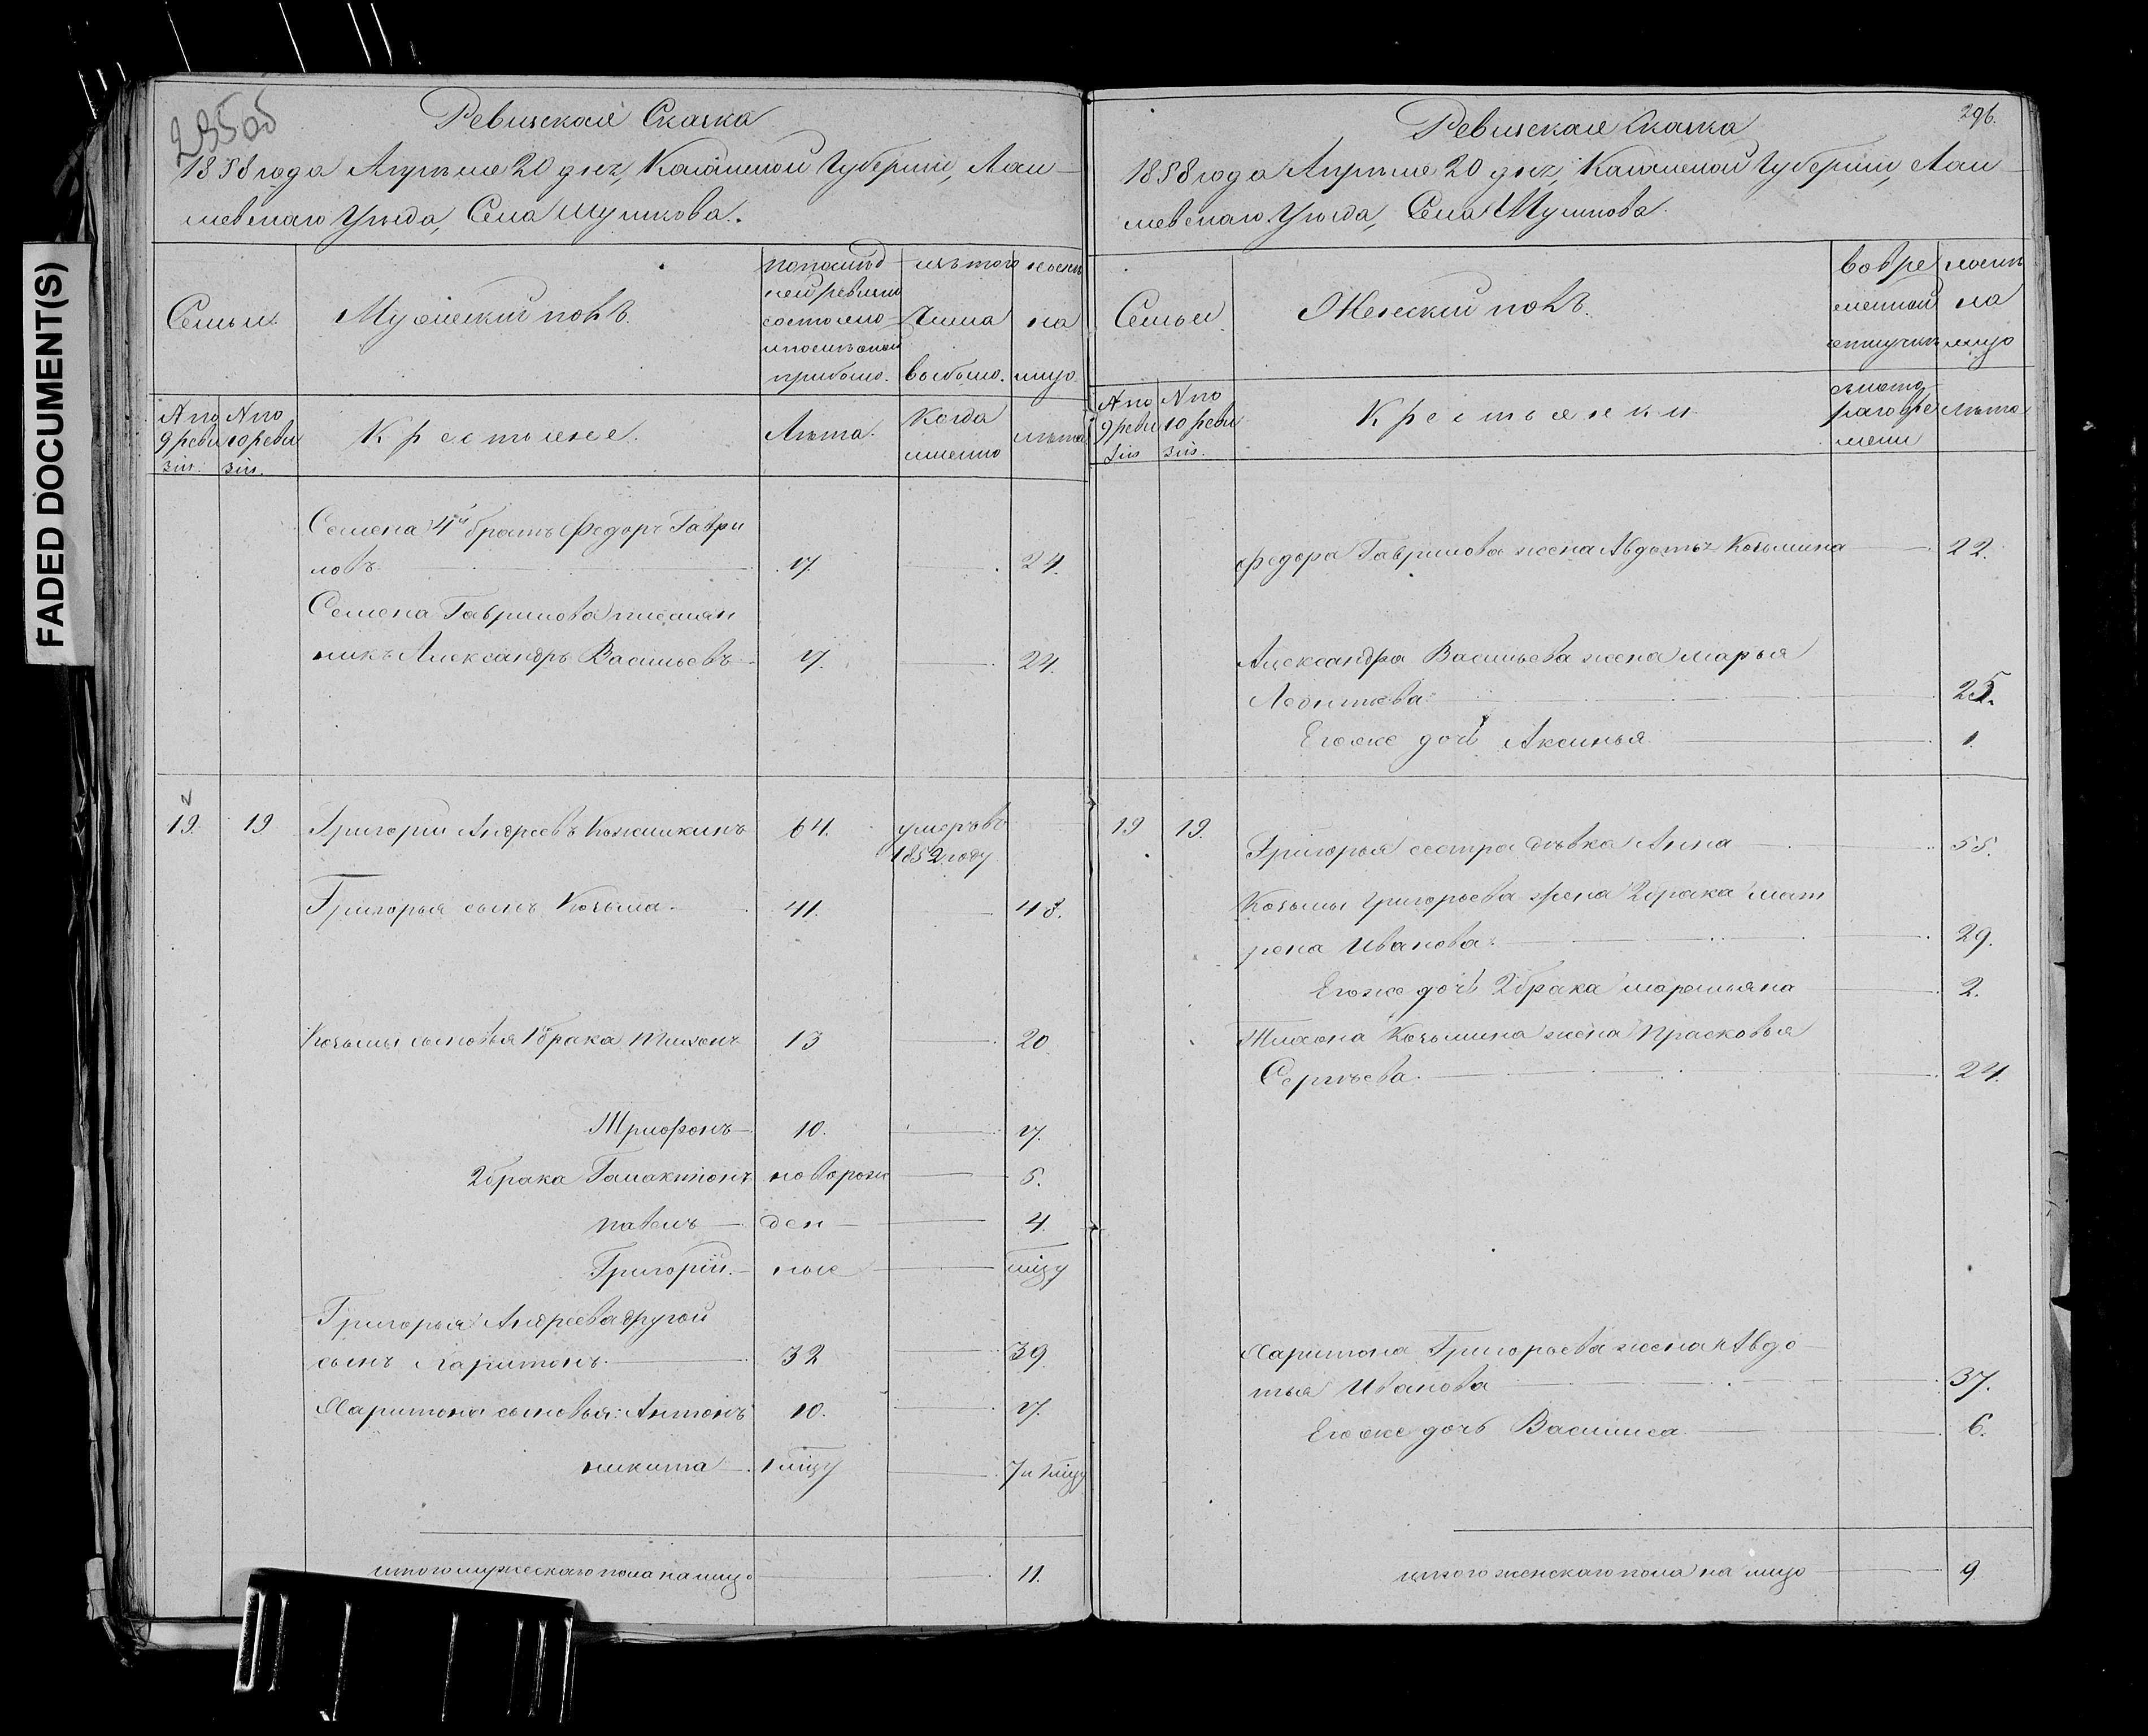 FADED DOCUMENT(S)
295об
Ревизская Сказка
1858 года Апреля 20 дня, Казанской Губернии, Лаи-
шевскаго Уезда, Села Шумкова.
Семьи.
Мужеский полъ.
по послед
ней ревизии
состояло
и после оной
прибыло.
изъ того
числа
выбыло.
ныне
на
лицо
№ по
9 реви
зіи.
№ по
10 реви
зіи.
Крестьяне.
Лета.
Когда
именно
лета
Семена 4й братъ Федоръ Гаври
ловъ 17. 24.
Семена Гаврилова племян
никъ Александръ Васильевъ 17. 24.
19. 19 Григорий Андреевъ 64. умеръ въ
1852 году
Григорья сынъ Козьма 41. 48.
Козьмы сыновья 1 брака Тихонъ 13 20
Трифонъ 10. 17.
2 брака Галактионъ новорож 5.
Павелъ ден 4
Григорій ные
Григорья Андреева другой
сынъ Харитонъ 32 39
Харитона сыновья: Антонъ 10. 17.
Никита
итого мужескаго пола на лицо 11.
296.
Ревизская Сказка
1858 года Апреля 20 дня, Казанской Губернии, Лаи-
шевскаго Уезда, Села Шумкова.
Семьи
Женский полъ.
во вре
менной
отлучке
ныне
на
лицо
№ по
9 реви
зіи
№ по
10 реви
зіи.
Крестьянки
съ кото
раго вре
мени
лета
Федора Гаврилова жена Авдотья Козьмина 22.
Александра Васильева жена Марья
Леонтьева 25.
Его же дочь Аксинья 1.
19 19. Григорья сестра девка Анна 55.
Козьмы Григорьева жена 2 брака Мат
рена Иванова 29.
Его же дочь 2 брака Маремьяна 2.
Тихона Козьмина жена Прасковья
Сергеева 24.
Харитона Григорьева жена Авдо
тья Иванова 37.
Его же дочь Василиса 6.
итого женскаго пола на лицо 9